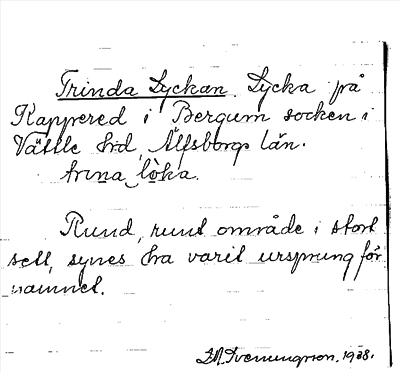 Trinda Lyckan. Lycka på
Kappered i Bergum socken i
Vättle hd, Älfsborgs län.
trına lòka.
Rund, runt område i stort
sett, synes ha varit ursprung för
namnet.
1938.